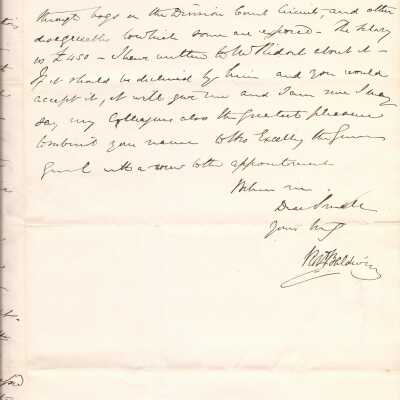 through bogs on the Division Court Circuit, and other
disagreeable to which some are exposed – The salary
is £450 – I have written to Mr Ridout about it –
If it should be declined by him and you would
accept it, it will give me and I am sure I may
say my Colleagues also the greatest pleasure
to submit you name to His Excelly the Govern
Genl with a view to the appointment
Believe me
Dear Smith
Yours truly
Robt Baldwin